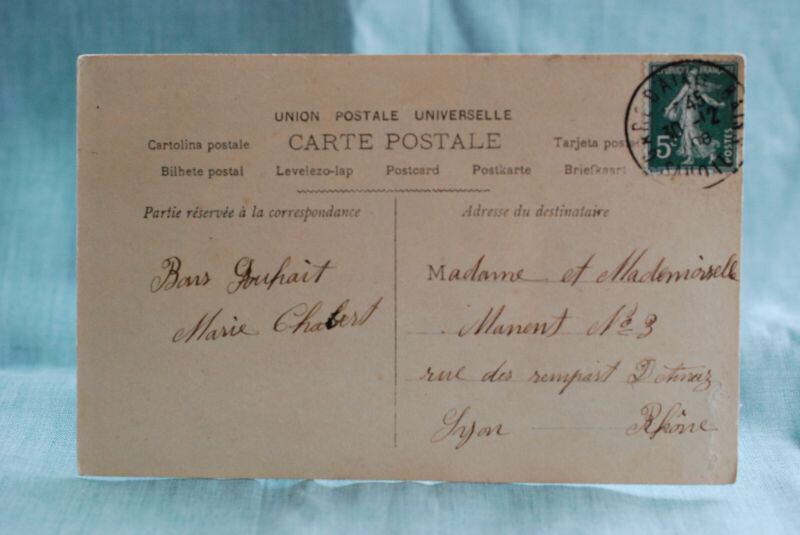 UNION POSTALE UNIVERSELLE
CARTE POSTALE
Cartolina postale
Tarjeta postal
Bilhete postal Levelezo-lap Postcard Postkarte Briefkaart
Partie réservée à la correspondance
Adresse du destinataire
Bons Souhait
Marie Chabert
Madame et Mademoiselle
Manent No 3
rue des rempart D'Ainay
Lyon Rhône
5c
POSTES